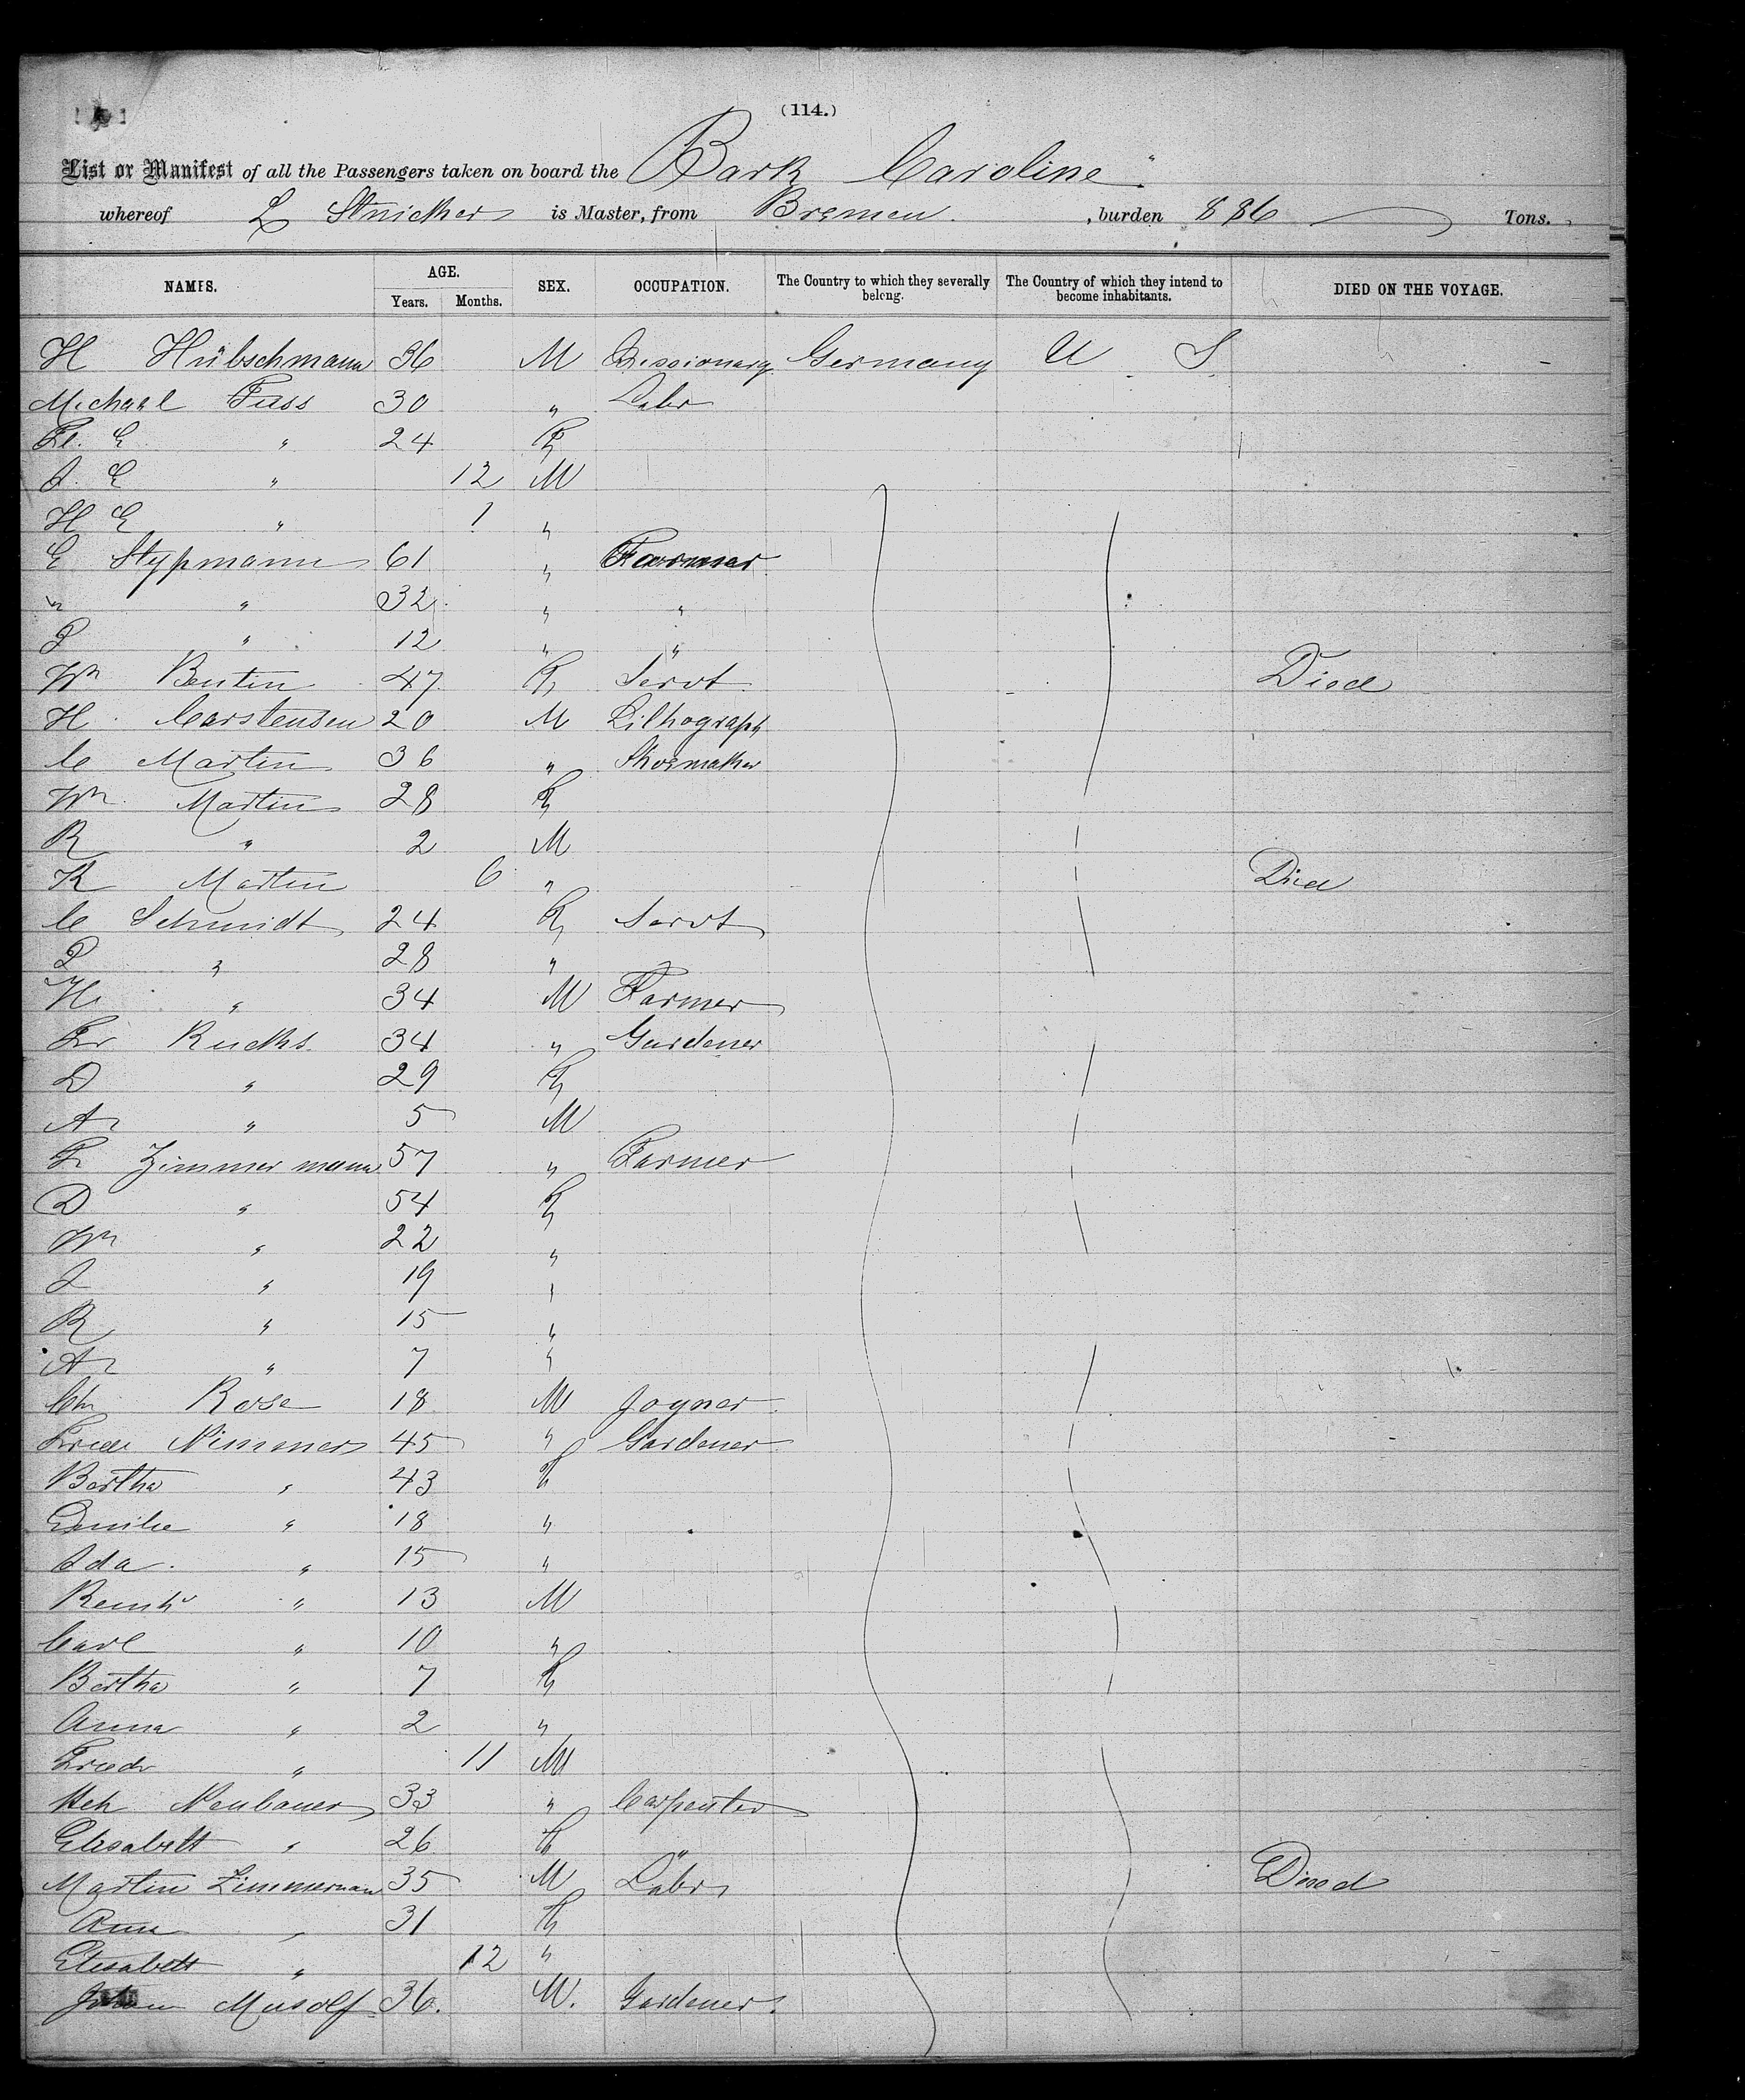 (114.)
List or Manifest of all the Passengers taken on board the Bark Caroline
whereof L Stricker is Master, from Bremen , burden 886 Tons.
NAMES. AGE. Years. Months. SEX. OCCUPATION. The Country to which they severally belong. The Country of which they intend to become inhabitants. DIED ON THE VOYAGE.
H Hübschmann 36 M Missionary Germany U S
Michael Fuss 30 " Labr
Fl. E " 24 F
J. E " 12 M
H E " 1 "
E Stypmann 61 " Farmer
" " 32 " "
" 12 " "
Wn Bentin 47 F Servt Died
H Carstensen 20 M Lithograph
C Martin 36 " Shoemaker
Wn Martin 28 F
R " 2 M
K Martin 6 " Died
C Schmidt 24 F Servt
" 28 "
H " 34 M Farmer
Fr Ruchs 34 " Gardener
D " 29 F
A " 5 M
F Zimmermann 57 " Farmer
D " 54 F
Wn " 22 "
J " 19 "
R " 15 "
A " 7 "
Chr Rose 18 M Joyner
Friedr Nimmer 45 " Gardener
Bertha " 43 F
Emilie " 18 "
Ida " 15 "
Reinhd " 13 M
Carl " 10 "
Bertha " 7 F
Anna " 2 "
Friedr " 11 M
Hch Neubauer 33 " Carpenter
Elisabeth " 26 F "
Martin Zimmerman 35 M Labr Died
Ann " 31 F
Elisabeth " 12 "
Johan Musolf 36. M. Gardener